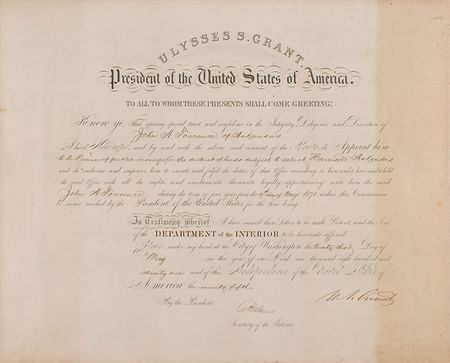 ULYSSES S. GRANT.
President of the United States of America.
TO ALL TO WHOM THESE PRESENTS SHALL COME GREETING:
Know ye, That reposing special trust and confidence in the Integrity, Diligence and Discretion of
John A. Torrence of Arkansas
I have nominated, and by and with the advice and consent of the Senate do Appoint him
to be Receiver of public moneys for the district of lands subject to sale at Harrison Arkansas
and do authorize and empower him to execute and fulfil the duties of that Office according to law and to have and to hold
the said Office with all the rights and emoluments thereunto legally appertaining unto him the said
John A. Torrence during the term of four years from the day of May 1871 unless this Commission
be sooner revoked by the President of the United States for the time being.
In Testimony whereof I have caused these Letters to be made Patent, and the Seal
of the DEPARTMENT of the INTERIOR to be hereunto affixed.
Given under my hand at the City of Washington the Day of
May in the year of our Lord one thousand eight hundred and
seventy one and of the Independence of the United States of
America the ninety fifth
By the President U. S. Grant
Delano
Secretary of the Interior